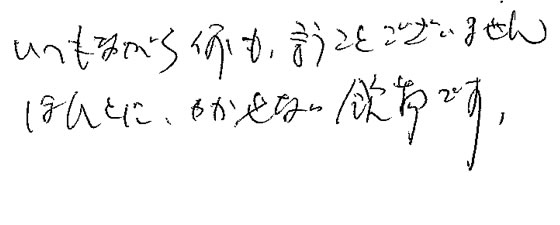 いつもながら何も、言うことございません
ほんとに、かかせない飲物です。